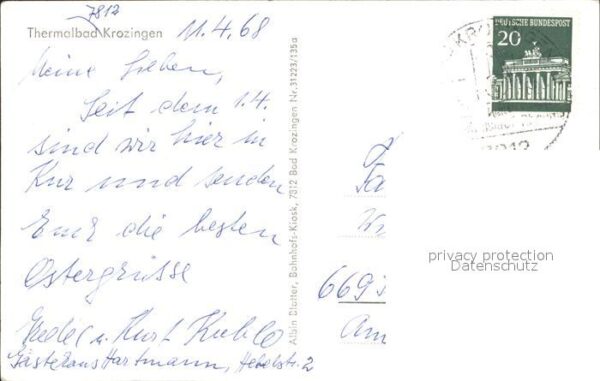 7812
Thermalbad Krozingen
11.4.68
Meine Lieben,
Seit dem 1.4.
sind wir hier in
Kur und senden
Euch die besten
Ostergrüsse
u. Kurt
Gästehaus Hartmann, Hebelstr. 2
Albin Dlutter, Bahnhofs-Kiosk, 7812 Bad Krozingen Nr. 31223/135a
DEUTSCHE BUNDESPOST
20
KRO
7812
Fa
669
Am
privacy protection
Datenschutz